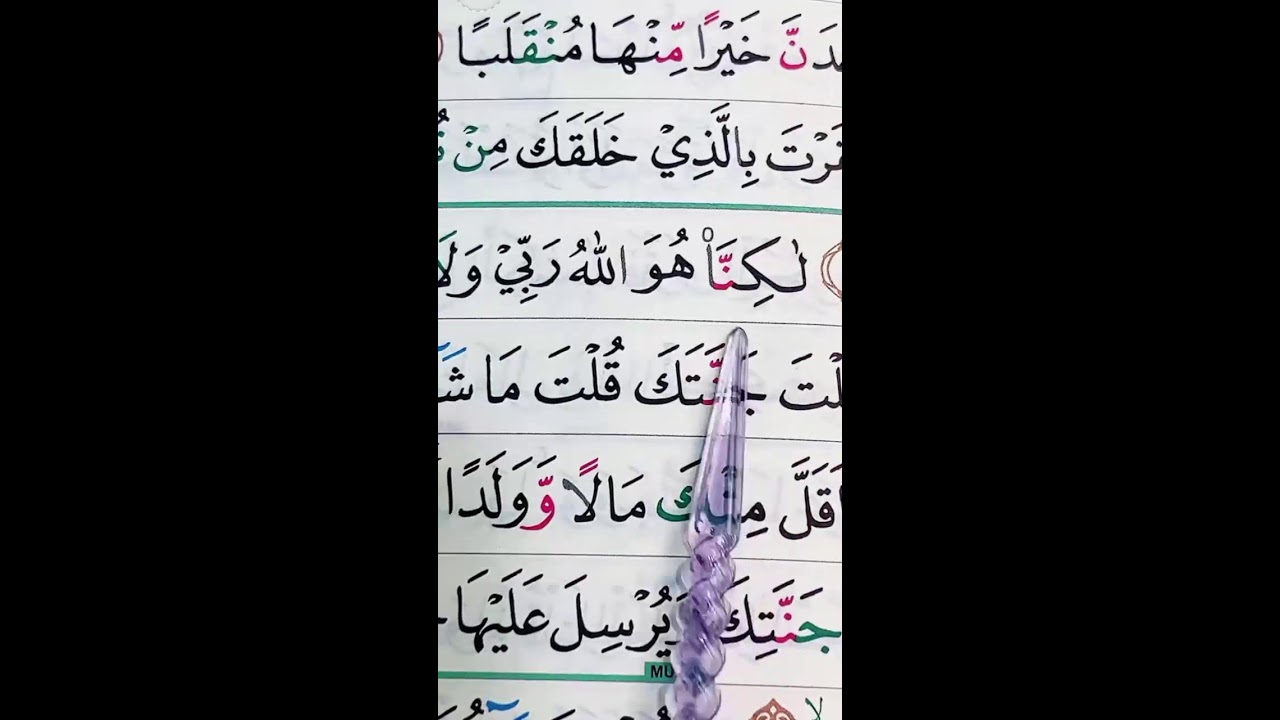 خَيْرًا مِّنْهَا مُنْقَلَبًا
بِالَّذِيْ خَلَقَكَ مِنْ
لٰكِنَّا۠ هُوَ اللّٰهُ رَبِّيْ وَلَا
جَنَّتَكَ قُلْتَ مَا
اَقَلَّ مِنْكَ مَالًا وَّوَلَدًا
جَنَّتِكَ وَيُرْسِلَ عَلَيْهَا